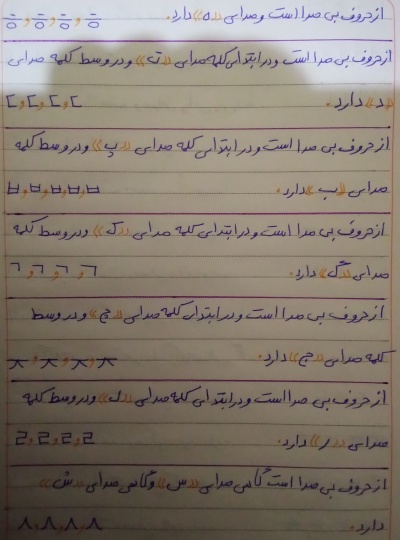 از حروف بی صدا است و صدای «ه» دارد. ㅎ و ㅎ و ㅎ و ㅎ
از حروف بی صدا است و در ابتدای کلمه صدای «ت» و در وسط کلمه صدای
«د» دارد. ㄷ و ㄷ و ㄷ و ㄷ
از حروف بی صدا است و در ابتدای کلمه صدای «پ» و در وسط کلمه
صدای «ب» دارد. ㅂ و ㅂ و ㅂ و ㅂ
از حروف بی صدا است و در ابتدای کلمه صدای «ک» و در وسط کلمه
صدای «گ» دارد. ㄱ و ㄱ و ㄱ و ㄱ
از حروف بی صدا است و در ابتدای کلمه صدای «چ» و در وسط
کلمه صدای «ج» دارد. ㅈ و ㅈ و ㅈ و ㅈ
از حروف بی صدا است و در ابتدای کلمه صدای «ل» و در وسط کلمه
صدای «ر» دارد. ㄹ و ㄹ و ㄹ و ㄹ
از حروف بی صدا است گاهی صدای «س» و گاهی صدای «ش»
دارد. ㅅ و ㅅ و ㅅ و ㅅ